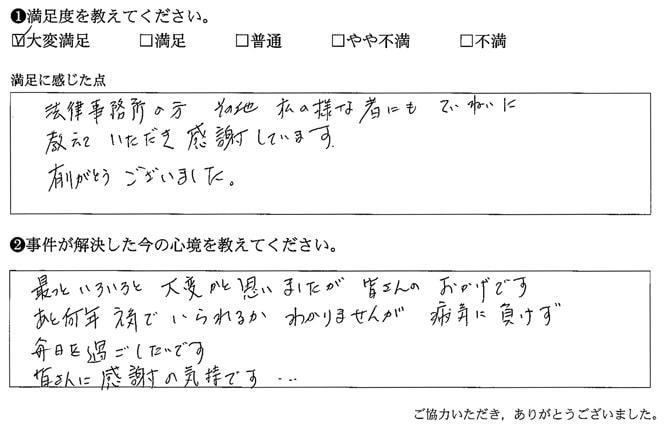 ❶満足度を教えてください。
☑大変満足 □満足 □普通 □やや不満 □不満
満足に感じた点
法律事務所の方 その他 私の様な者にも ていねいに
教えて いただき 感謝しています。
有りがとう ございました。
❷事件が解決した今の心境を教えてください。
いろいろと 大変かと思いましたが 皆さんの おかげです
あと何年 元気で いられるか わかりませんが 病気に 負けず
毎日を過ごしたいです
皆さんに 感謝の気持です…
ご協力いただき，ありがとうございました。